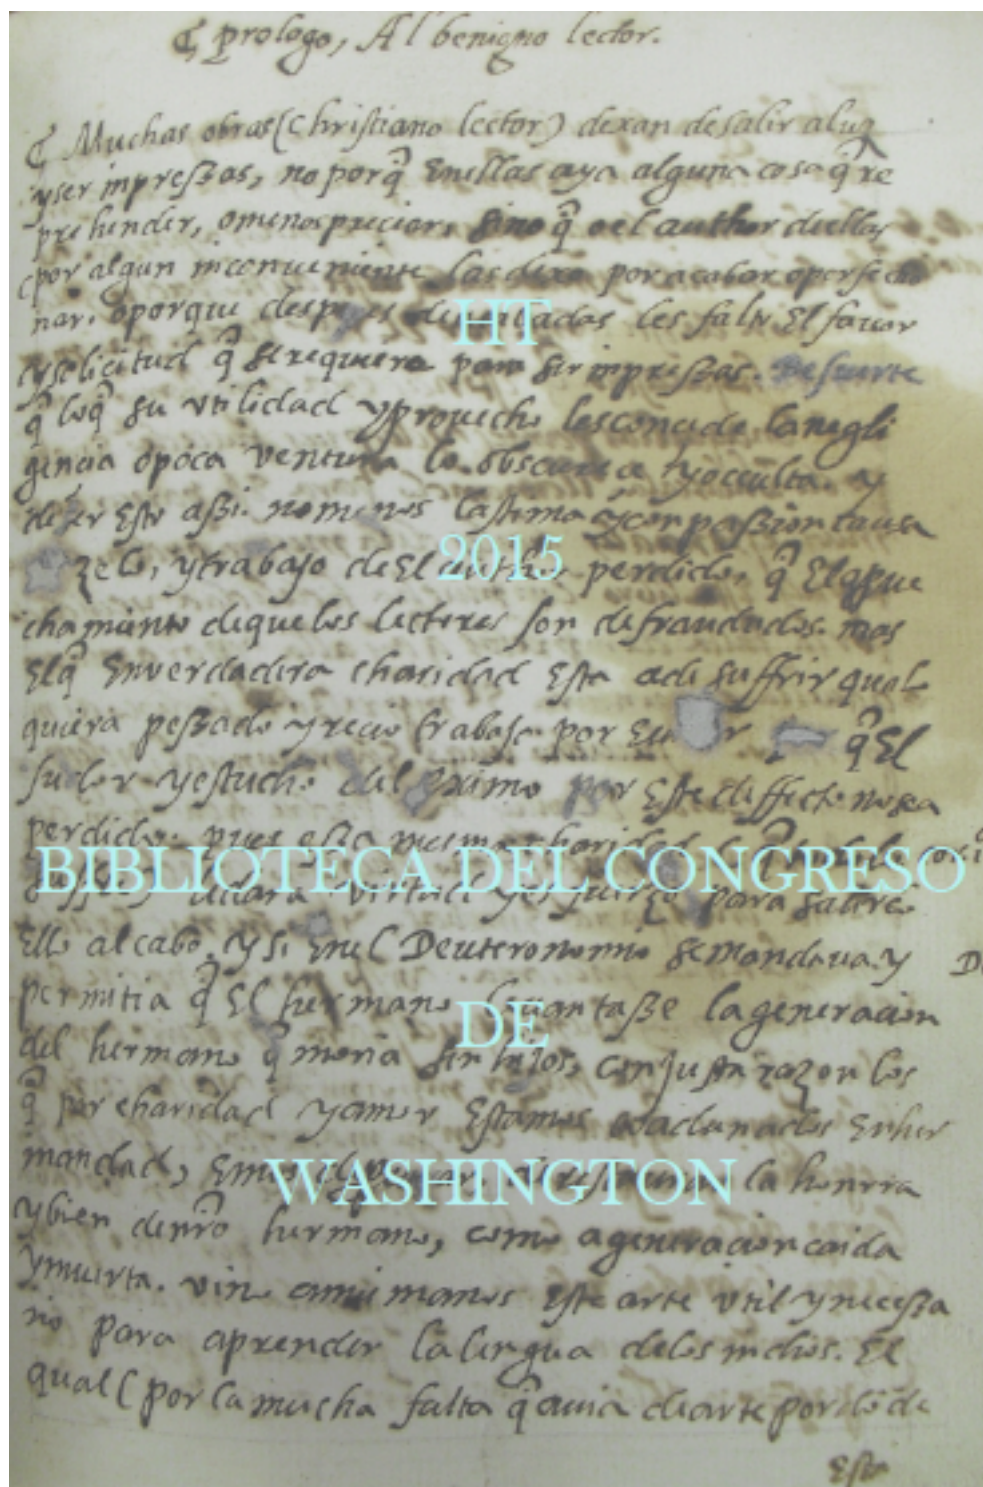 ¶ prologo, Al benigno lector.
¶ Muchas obras (christiano lector) dexan de salir a luz
y ser impressas, no porq̃ en ellas aya alguna cosa q̃ re
prehender, o menospreciar, sino q̃ o el author dellas
por algun inconveniente las dexa por acabar o perfectio
nar. o porque despues de acabadas les falta El favor
y solicitud q̃ se requiere para ser impressas. De suerte
q̃ loq̃ su utilidad y provecho les concede la negli
gencia o poca ventura lo obscurece y occulta. y
de ver Esto assi. no menos lastima y compassion causa
zelo, y trabajo de El author perdido, q̃ El aprue
chamiento de que los lectores son defraudados. mas
Elq̃ En verdadera charidad Esta ade suffrir qual
quiera pessado y recio trabajo por q̃ El
sudor y estudio del proximo por Este deffecto no sea
perdido. pues esta mesma charidad
dara virtud y esfuerço para salir co
Ello al cabo. y si En el Deuteronomio se mandava. y
permitia q̃ El hermano levantasse la generacion
del hermano q̃ moria sin hijos, con justa razon los
q̃ por charidad y amor Estamos coadunados En her
mandad, la honrra
y bien de nr̃o hermano, como a generacion caida
y muerta. vino a mis manos Este arte util y necessa
rio para aprender la lengua de los indios. El
qual (por la mucha falta q̃ avia de arte por dõde
Esta
HT
2015
BIBLIOTECA DEL CONGRESO
DE
WASHINGTON